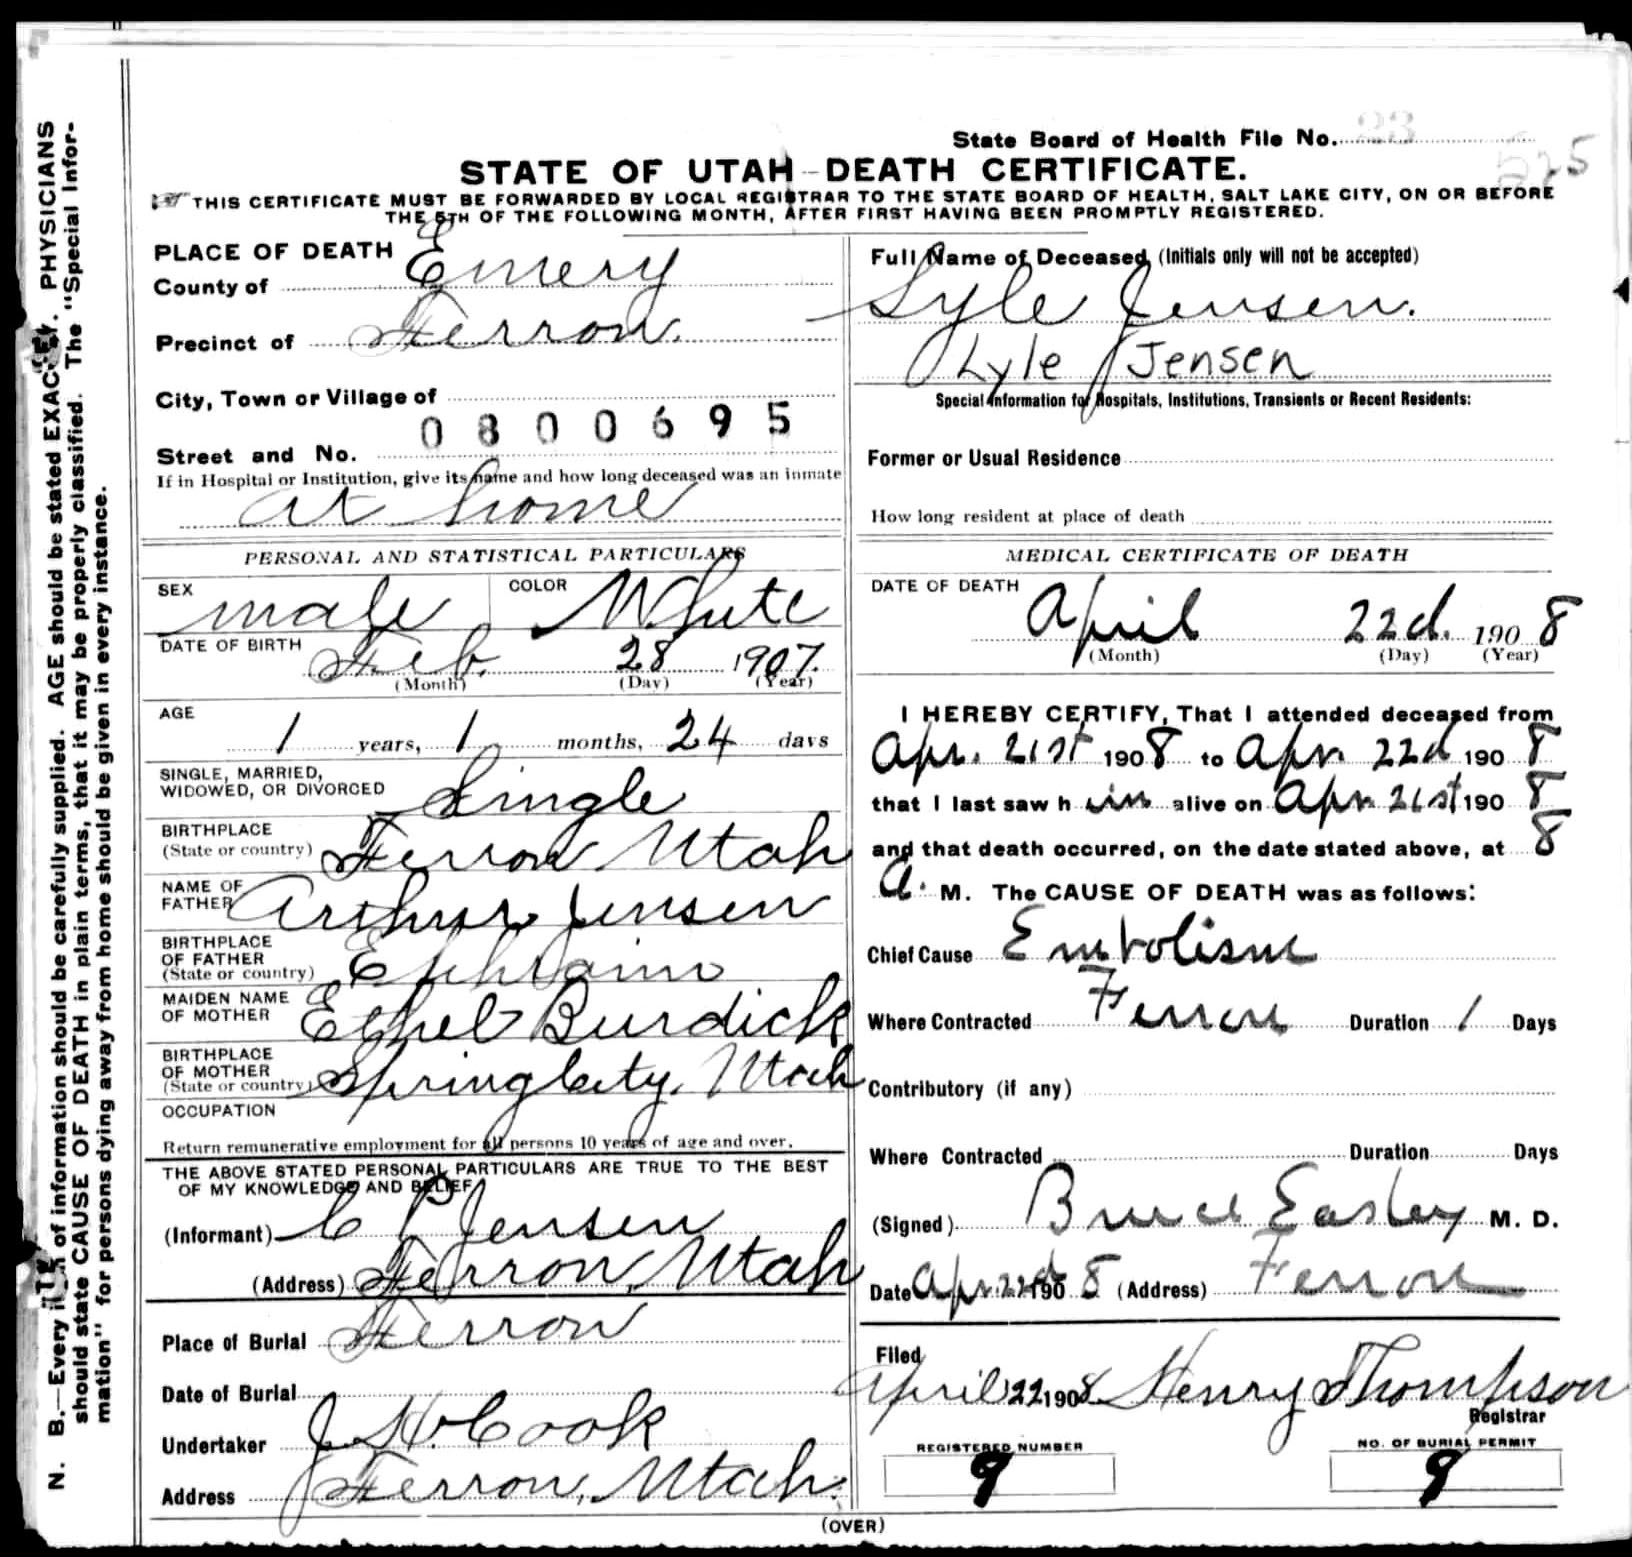 State Board of Health File No. 23
525
STATE OF UTAH-DEATH CERTIFICATE.
THIS CERTIFICATE MUST BE FORWARDED BY LOCAL REGISTRAR TO THE STATE BOARD OF HEALTH, SALT LAKE CITY, ON OR BEFORE
THE 5TH OF THE FOLLOWING MONTH, AFTER FIRST HAVING BEEN PROMPTLY REGISTERED.
PLACE OF DEATH
County of Emery
Precinct of Ferron.
City, Town or Village of
0800695
Street and No.
If in Hospital or Institution, give its name and how long deceased was an inmate
at home
PERSONAL AND STATISTICAL PARTICULARS
SEX male COLOR White
DATE OF BIRTH Feb. 28 1907.
(Month) (Day) (Year)
AGE 1 years, 1 months, 24 days
SINGLE, MARRIED,
WIDOWED, OR DIVORCED Single
BIRTHPLACE
(State or country) Ferron Utah
NAME OF
FATHER Arthur Jensen
BIRTHPLACE
OF FATHER
(State or country) Ephraim
MAIDEN NAME
OF MOTHER Ethel Burdick
BIRTHPLACE
OF MOTHER
(State or country) Spring City, Utah
OCCUPATION
Return remunerative employment for all persons 10 years of age and over.
THE ABOVE STATED PERSONAL PARTICULARS ARE TRUE TO THE BEST
OF MY KNOWLEDGE AND BELIEF
(Informant) C P Jensen
(Address) Ferron, Utah
Place of Burial Ferron
Date of Burial
Undertaker J. H. Cook
Address Ferron, Utah.
Full Name of Deceased (Initials only will not be accepted)
Lyle Jensen.
Lyle Jensen
Special Information for Hospitals, Institutions, Transients or Recent Residents:
Former or Usual Residence
How long resident at place of death
MEDICAL CERTIFICATE OF DEATH
DATE OF DEATH April 22d. 1908
(Month) (Day) (Year)
I HEREBY CERTIFY, That I attended deceased from
Apr. 21st 1908 to Apr. 22d 1908
that I last saw him alive on Apr 21st 1908
and that death occurred, on the date stated above, at 8
a. M. The CAUSE OF DEATH was as follows:
Chief Cause Embolism
Where Contracted Ferron Duration 1 Days
Contributory (if any)
Where Contracted Duration Days
(Signed) Bruce Easley M. D.
Date Apr. 22d 1908 (Address) Ferron
Filed
April 22 1908 Henry Thompson
Registrar
REGISTERED NUMBER
9
NO. OF BURIAL PERMIT
9
(OVER)
N. B.—Every item of information should be carefully supplied. AGE should be stated EXACTLY. PHYSICIANS
should state CAUSE OF DEATH in plain terms, that it may be properly classified. The "Special Infor-
mation" for persons dying away from home should be given in every instance.